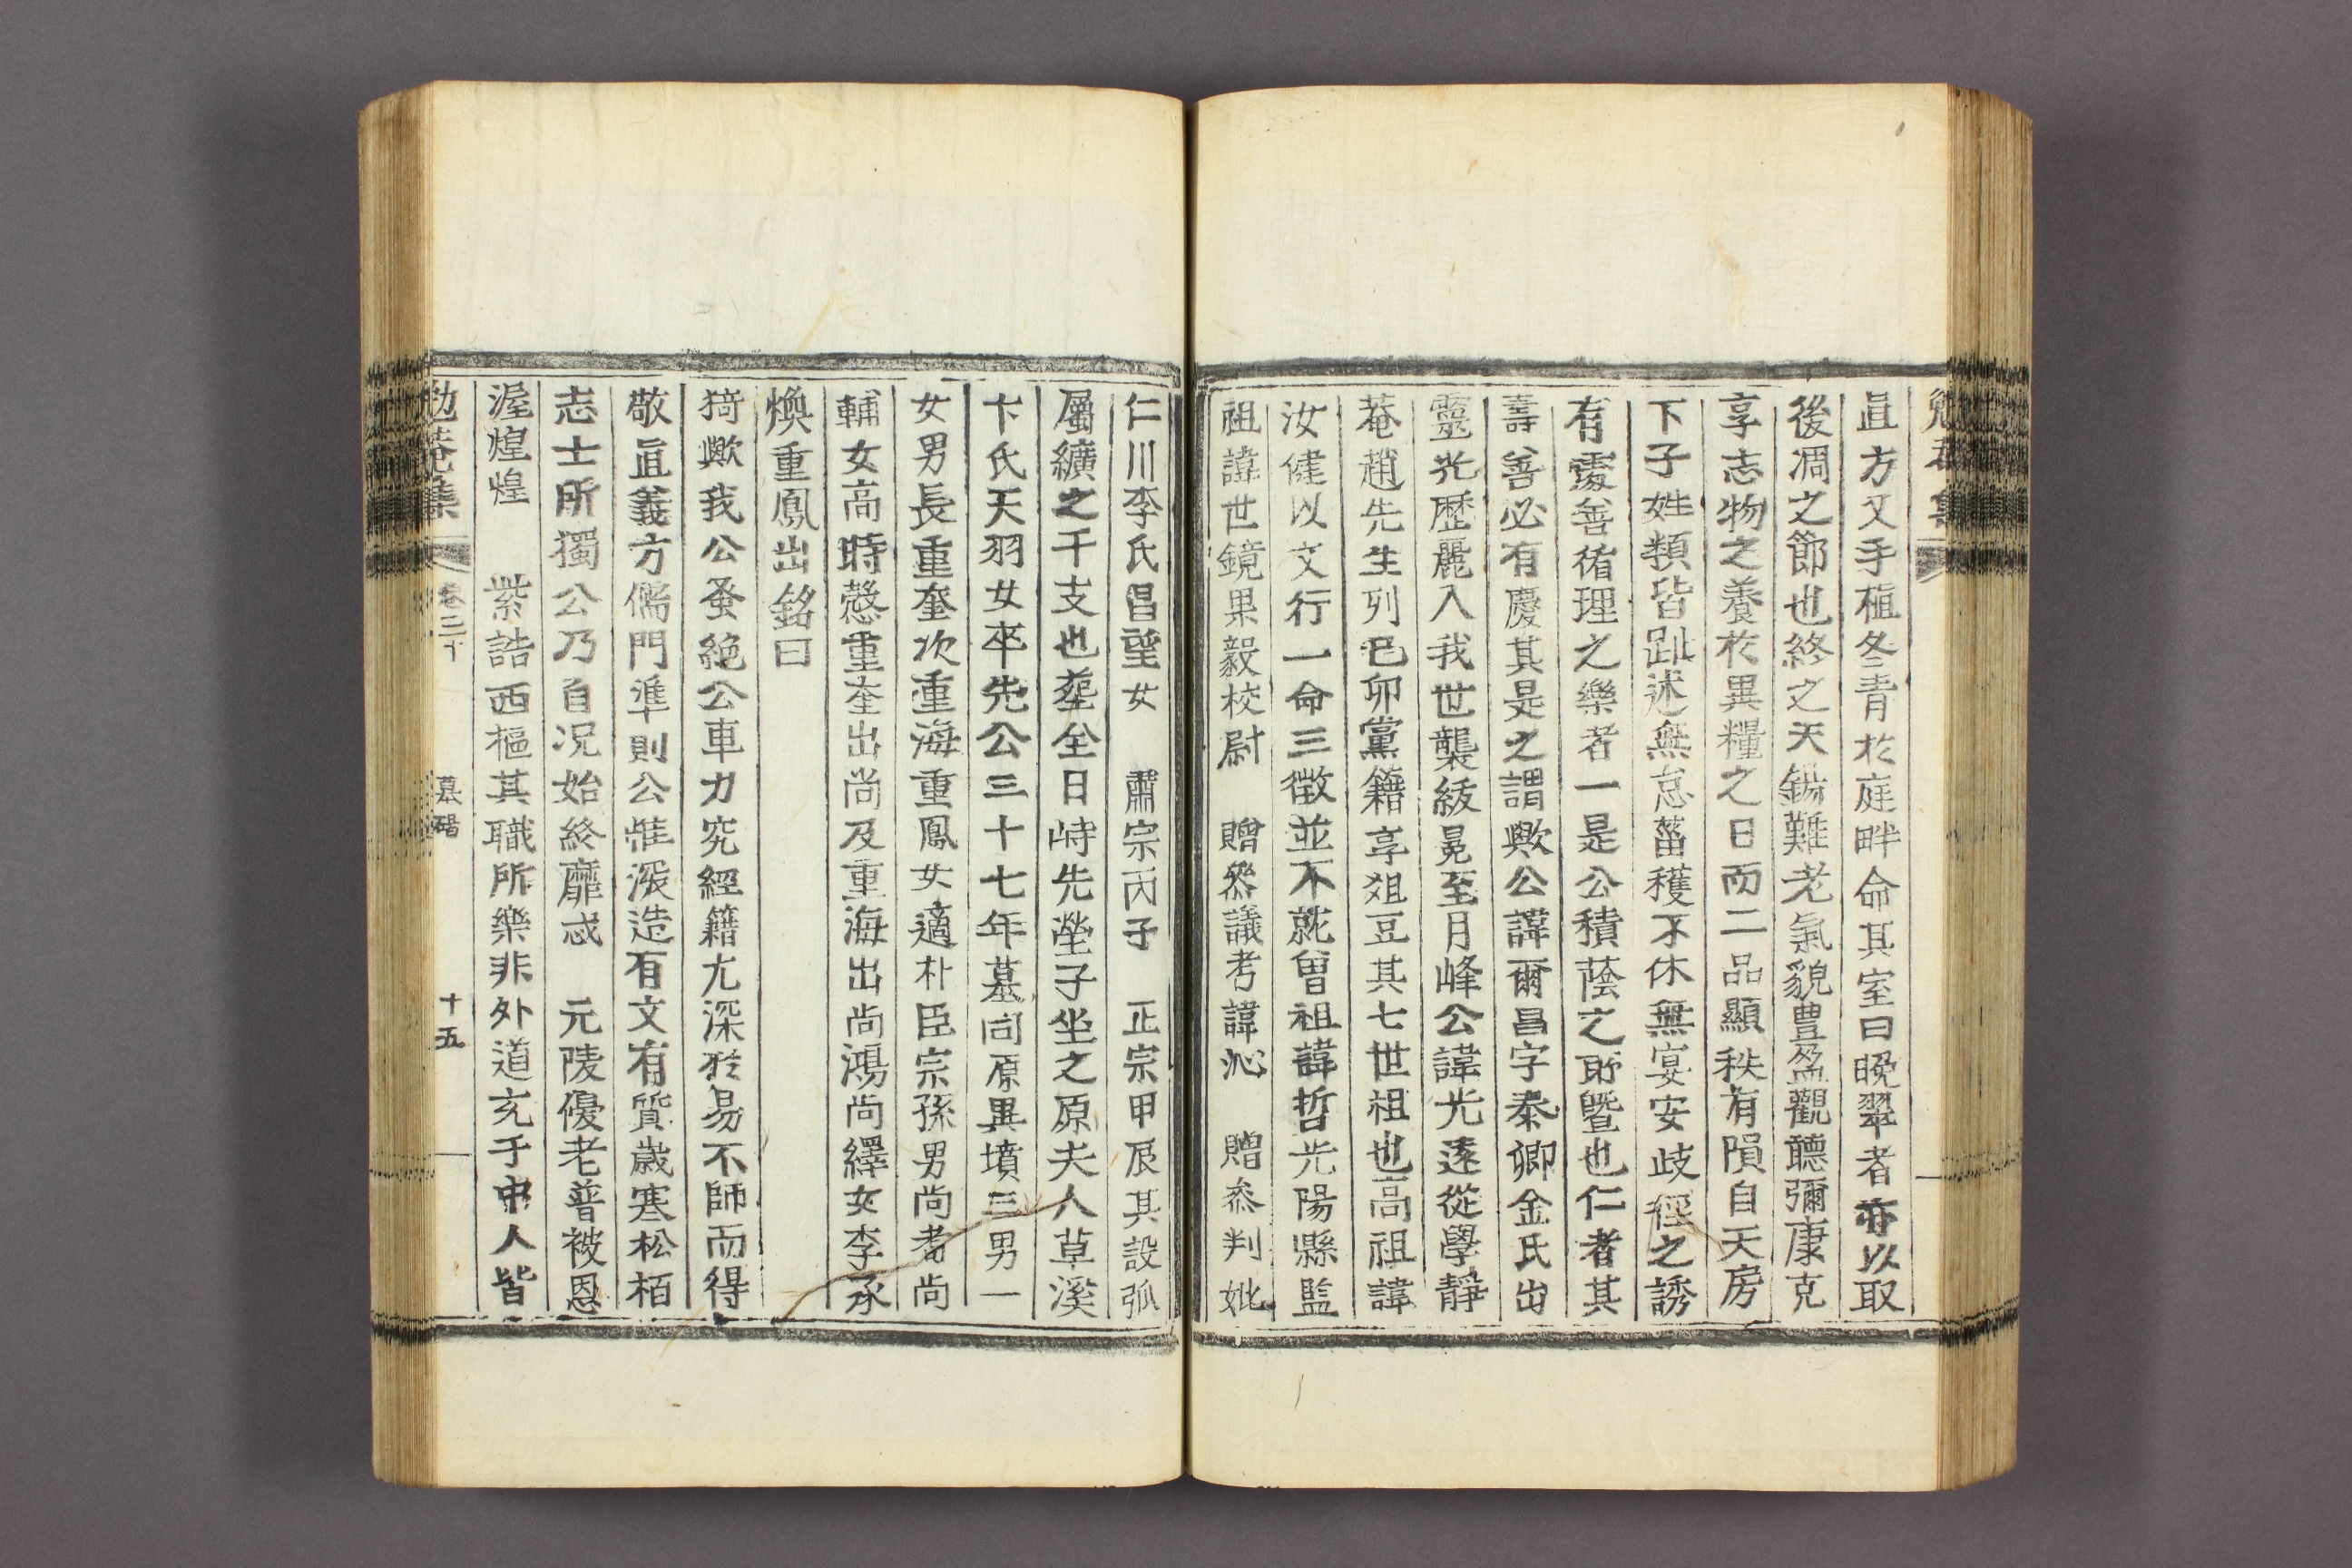 勉菴集
直方又手植冬青於庭畔命其室曰晩翠者亦以取
後凋之節也終之天錫難老氣貌豊盈觀聽彌康克
享志物之養於異糧之日而二品顯秩有隕自天房
下子姓類皆趾述無怠菑穫不休無宴安歧徑之誘
有處善循理之樂者一是公積蔭之所曁也仁者其
壽善必有慶其是之謂歟公諱爾昌字泰卿金氏出
靈光歷麗入我世襲紱冕至月峰公諱光遠從學靜
菴趙先生列己卯黨籍享俎豆其七世祖也高祖諱
汝健以文行一命三徵並不就曾祖諱哲光陽縣監
祖諱世鏡果毅校尉 贈叅議考諱沁 贈叅判妣
仁川李氏昌望女 肅宗丙子 正宗甲辰其設弧
屬纊之干支也塟全日峙先塋子坐之原夫人草溪
卞氏天羽女卒先公三十七年墓同原異墳三男一
女男長重奎次重海重鳳女適朴臣宗孫男尙耇尙
輔女高時慤重奎出尙及重海出尙鴻尙繹女李承
煥重鳳出銘曰
猗歟我公蚤絶公車力究經籍尤深於易不師而得
敬直義方儒門準則公惟深造有文有質歲寒松栢
志士所獨公乃自况始終靡忒 元陵優老普被恩
渥煌煌 紫誥西樞其職所樂非外道充于中人皆
勉菴集 卷二十 墓碣 十五